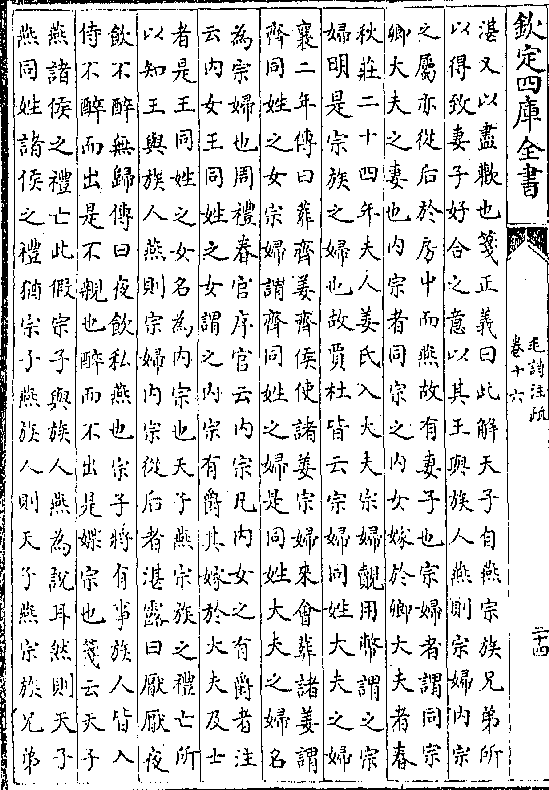 欽定四庫全書
毛詩注疏
卷十六
二十四
湛又以盡歡也箋正義曰此解天子自燕宗族兄弟所
以得致妻子好合之意以其王與族人燕則宗婦内宗
之屬亦從后於房中而燕故有妻子也宗婦者謂同宗
卿大夫之妻也内宗者同宗之内女嫁於卿大夫者春
秋莊二十四年夫人姜氏入大夫宗婦覿用幣謂之宗
婦明是宗族之婦也故賈杜皆云宗婦同姓大夫之婦
襄二年傳曰葬齊姜齊侯使諸姜宗婦來會葬諸姜謂
齊同姓之女宗婦謂齊同姓之婦是同姓大夫之婦名
為宗婦也周禮春官序官云内宗凡内女之有爵者注
云内女王同姓之女謂之内宗有爵其嫁於大夫及士
者是王同姓之女名為内宗也天子燕宗族之禮亡所
以知王與族人燕則宗婦内宗從后者湛露曰厭厭夜
飲不醉無歸傳曰夜飲私燕也宗子將有事族人皆入
侍不醉而出是不親也醉而不出是媟宗也箋云天子
燕諸侯之禮亡此假宗子與族人燕為說耳然則天子
燕同姓諸侯之禮猶宗子燕族人則天子燕宗族兄弟